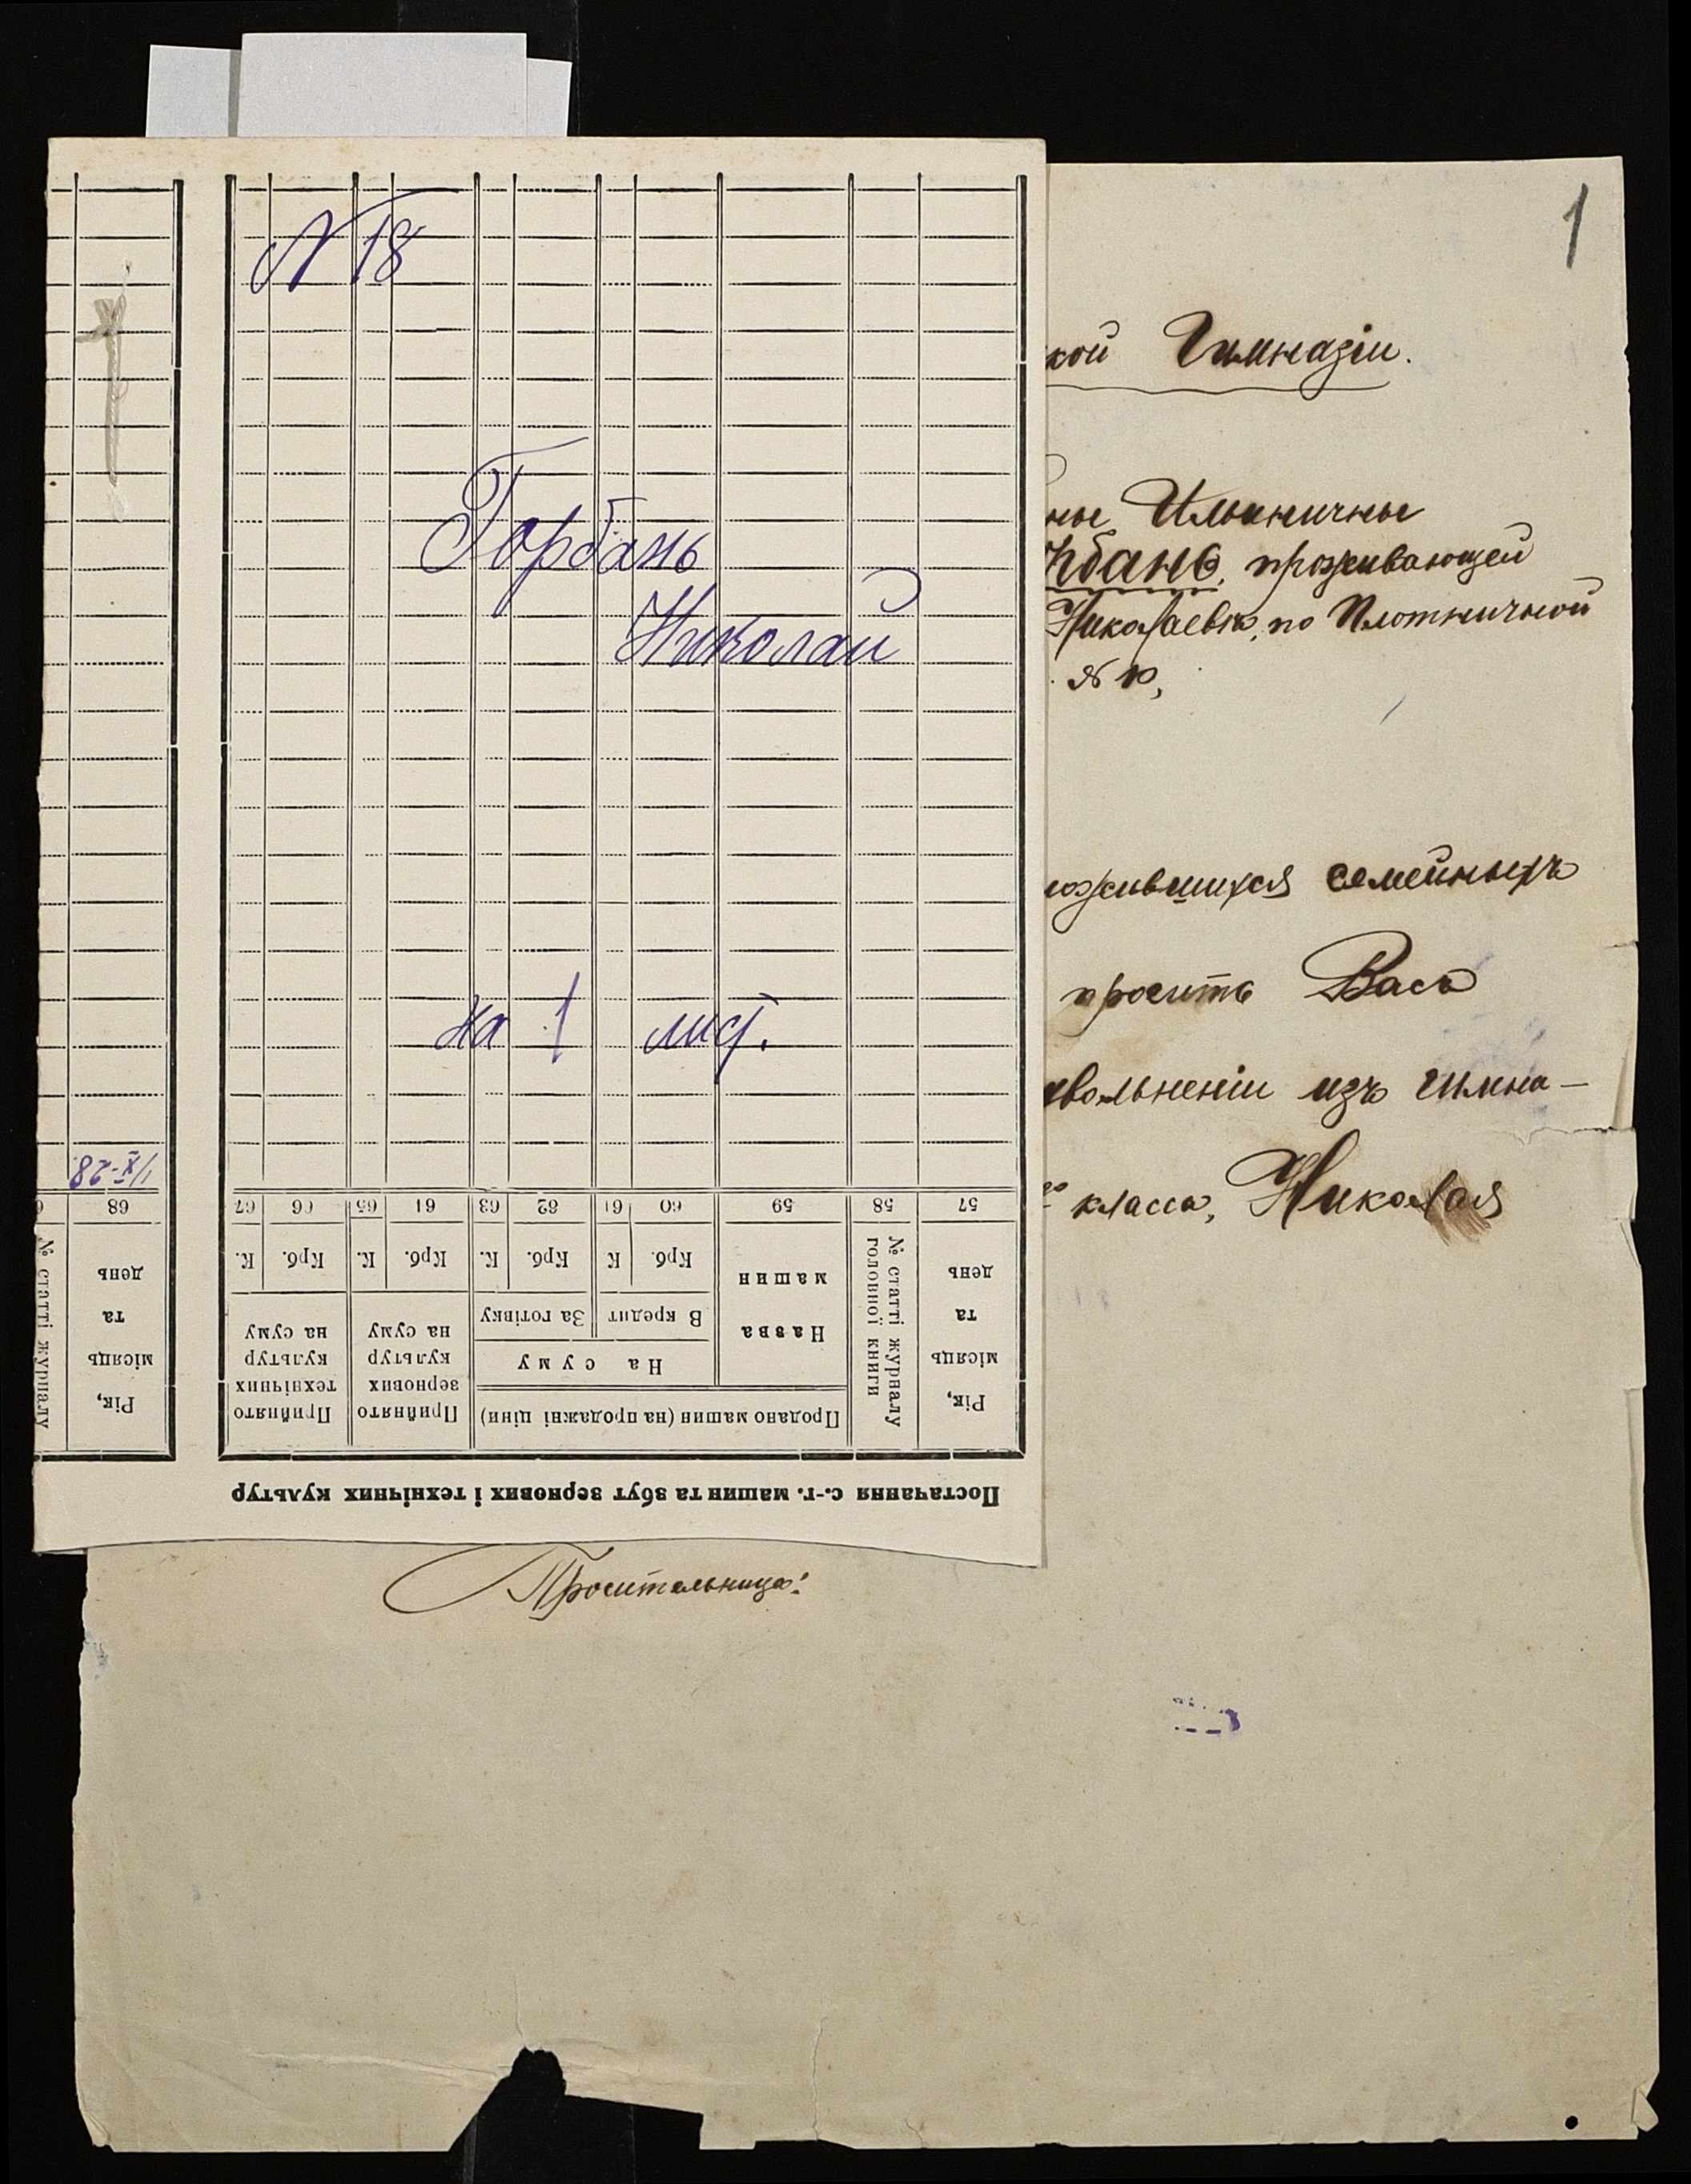 N 18
Горбань
Николай
на 1 лис.
1/X-28
68 67 66 65 64 63 62 61 60 59 58 57
№ статті журналу
Рік, місяць та день
К. Крб. К. Крб. К. Крб. К Крб.
Прийнято технічних культур на суму
Прийнято зернових культур на суму
За готівку
В кредит
На суму
Назва машин
Продано машин (на продажні ціни)
№ статті журналу головної книги
Рік, місяць та день
Постачання с.-г. машин та збут зернових і технічних культур
1
кой Гимназіи.
ны Ильиничны
рбань, проживающей
Николаевѣ, по Плотничной
№ 10,
ожившихся семейныхъ
просить Васъ
увольненіи изъ гимна-
го класса, Николая
Просительница: